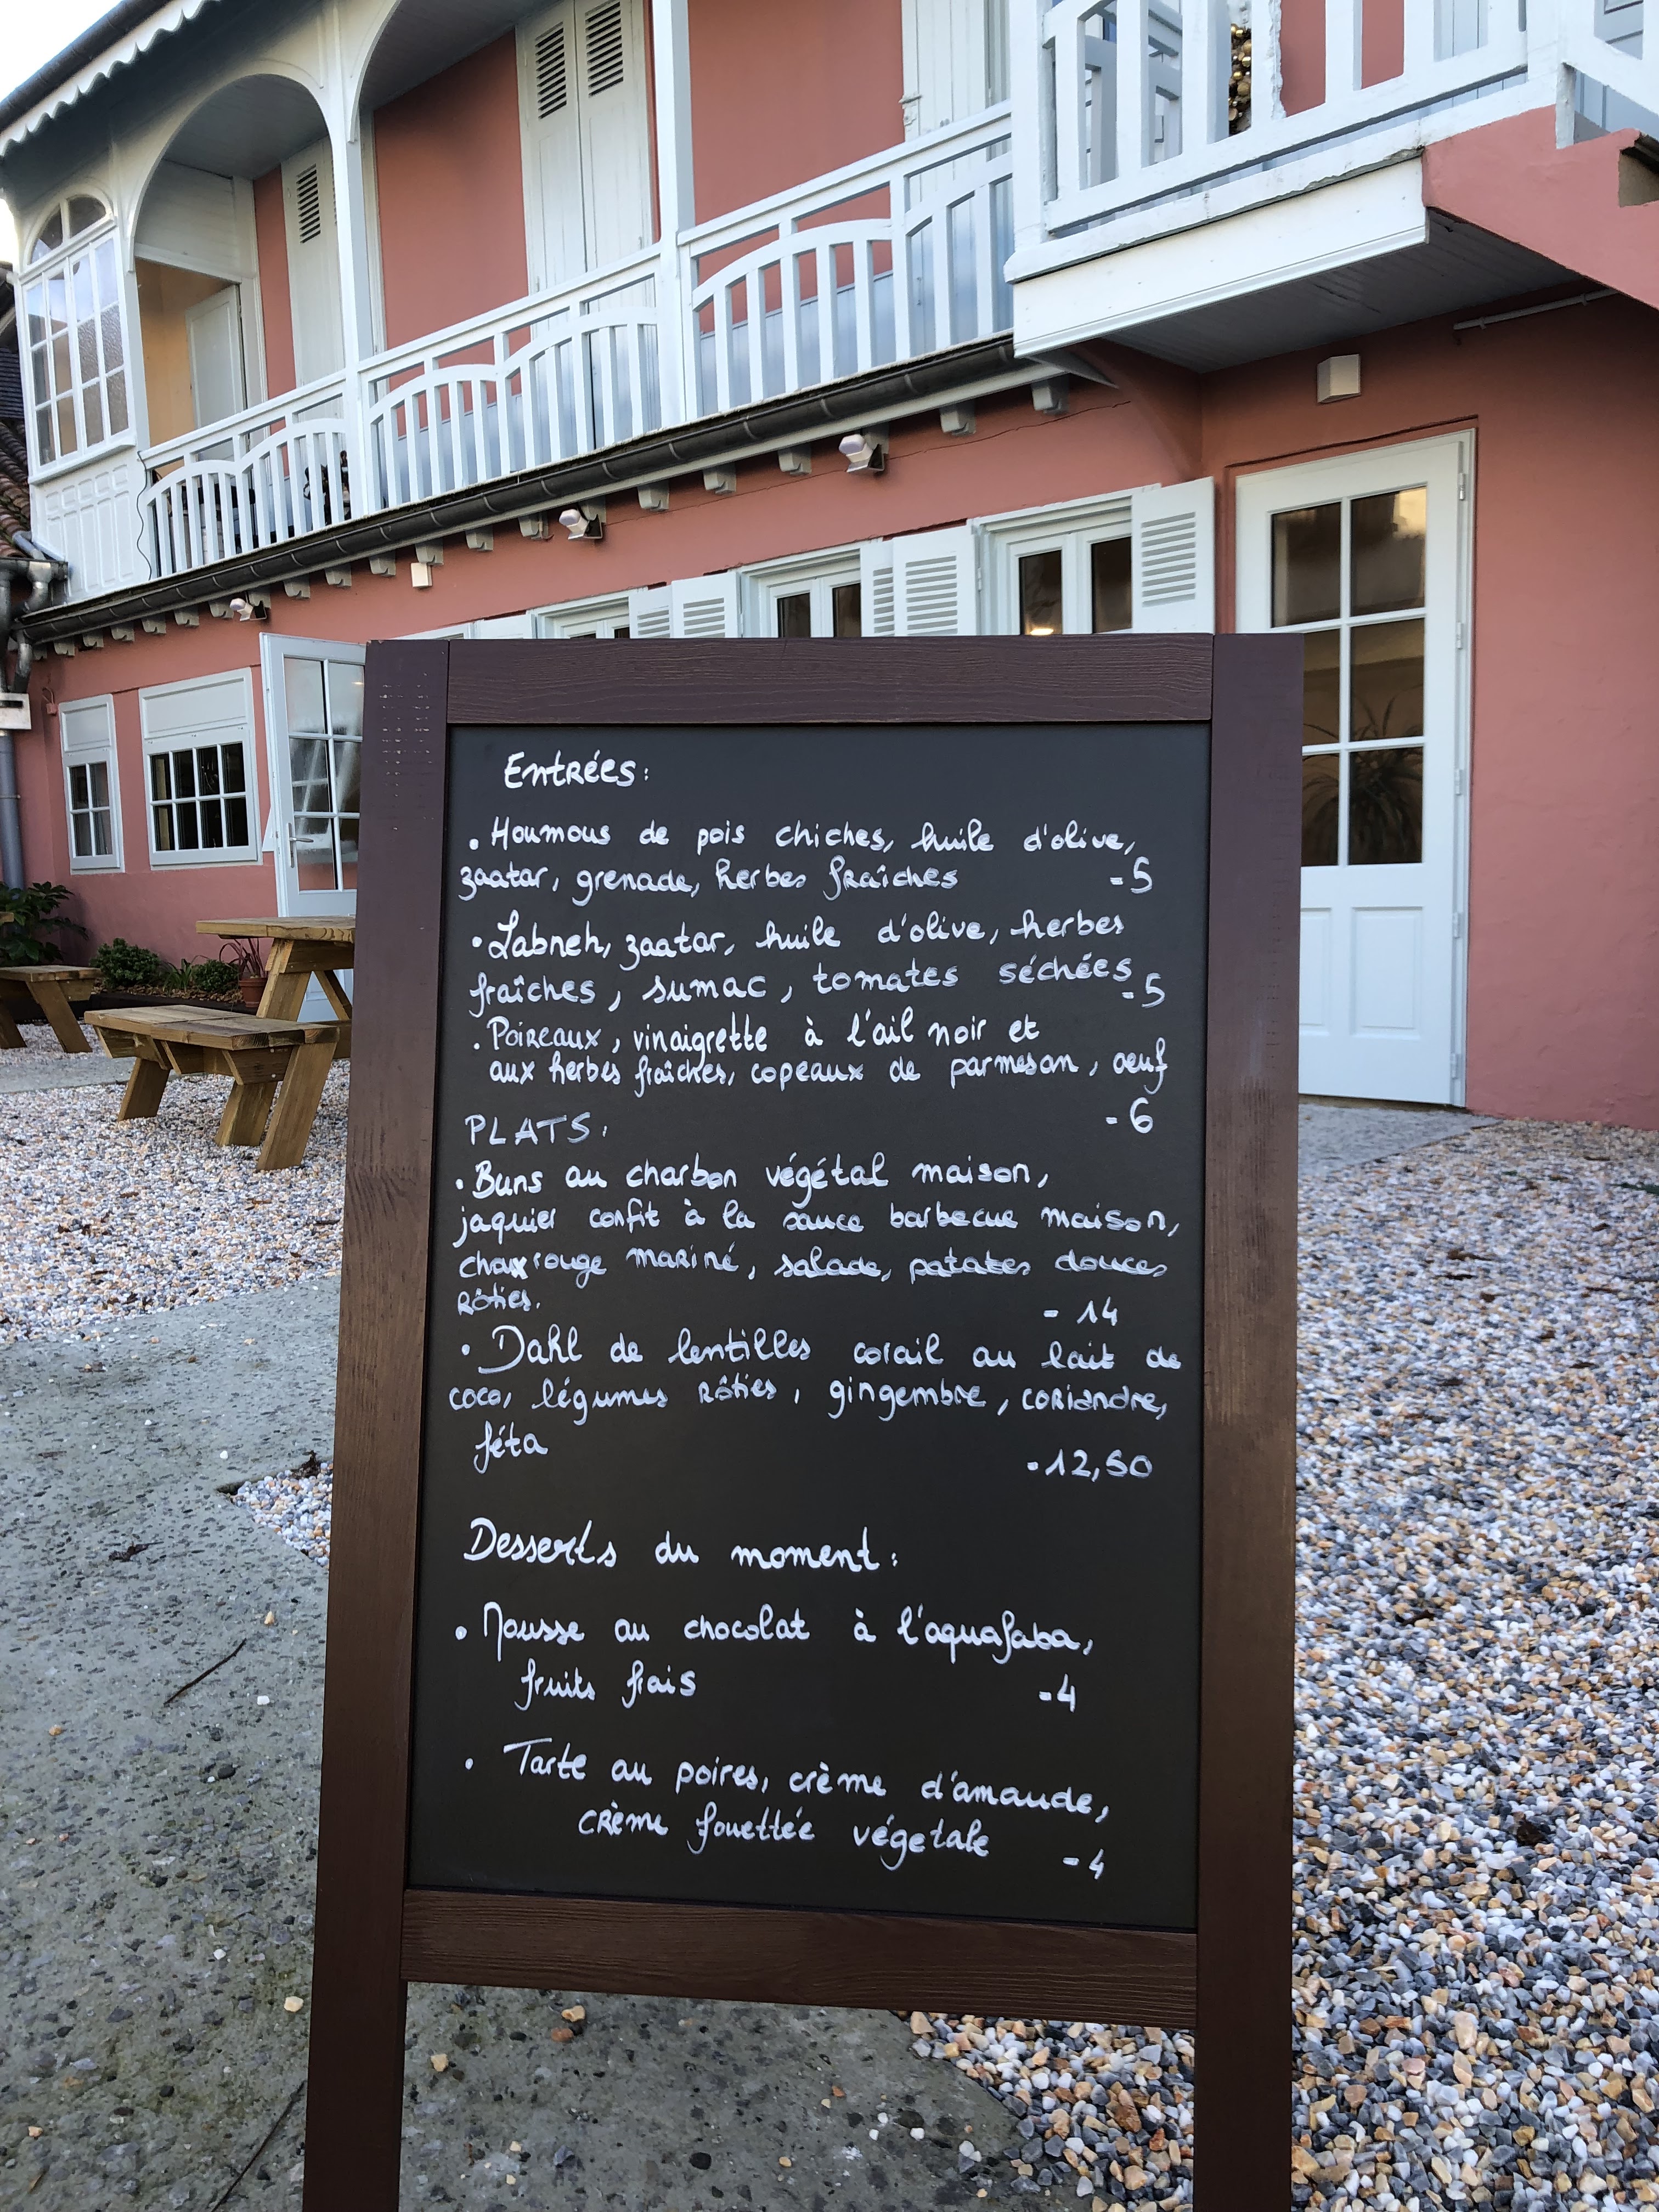 Entrées:
. Houmous de pois chiches, huile d'olive,
zaatar, grenade, herbes fraîches -5
. Labneh, zaatar, huile d'olive, herbes
fraîches, sumac, tomates séchées -5
. Poireaux, vinaigrette à l'ail noir et
aux herbes fraîches, copeaux de parmesan, oeuf
-6
PLATS:
. Buns au charbon végétal maison,
jaquier confit à la sauce barbecue maison,
choux rouge mariné, salade, patates douces
Rôties. - 14
. Dahl de lentilles corail au lait de
coco, légumes Rôties, gingembre, coriandre,
féta
-12,50
Desserts du moment:
. Mousse au chocolat à l'aquafaba,
fruits frais -4
. Tarte au poires, crème d'amande,
crème fouettée végetale -4